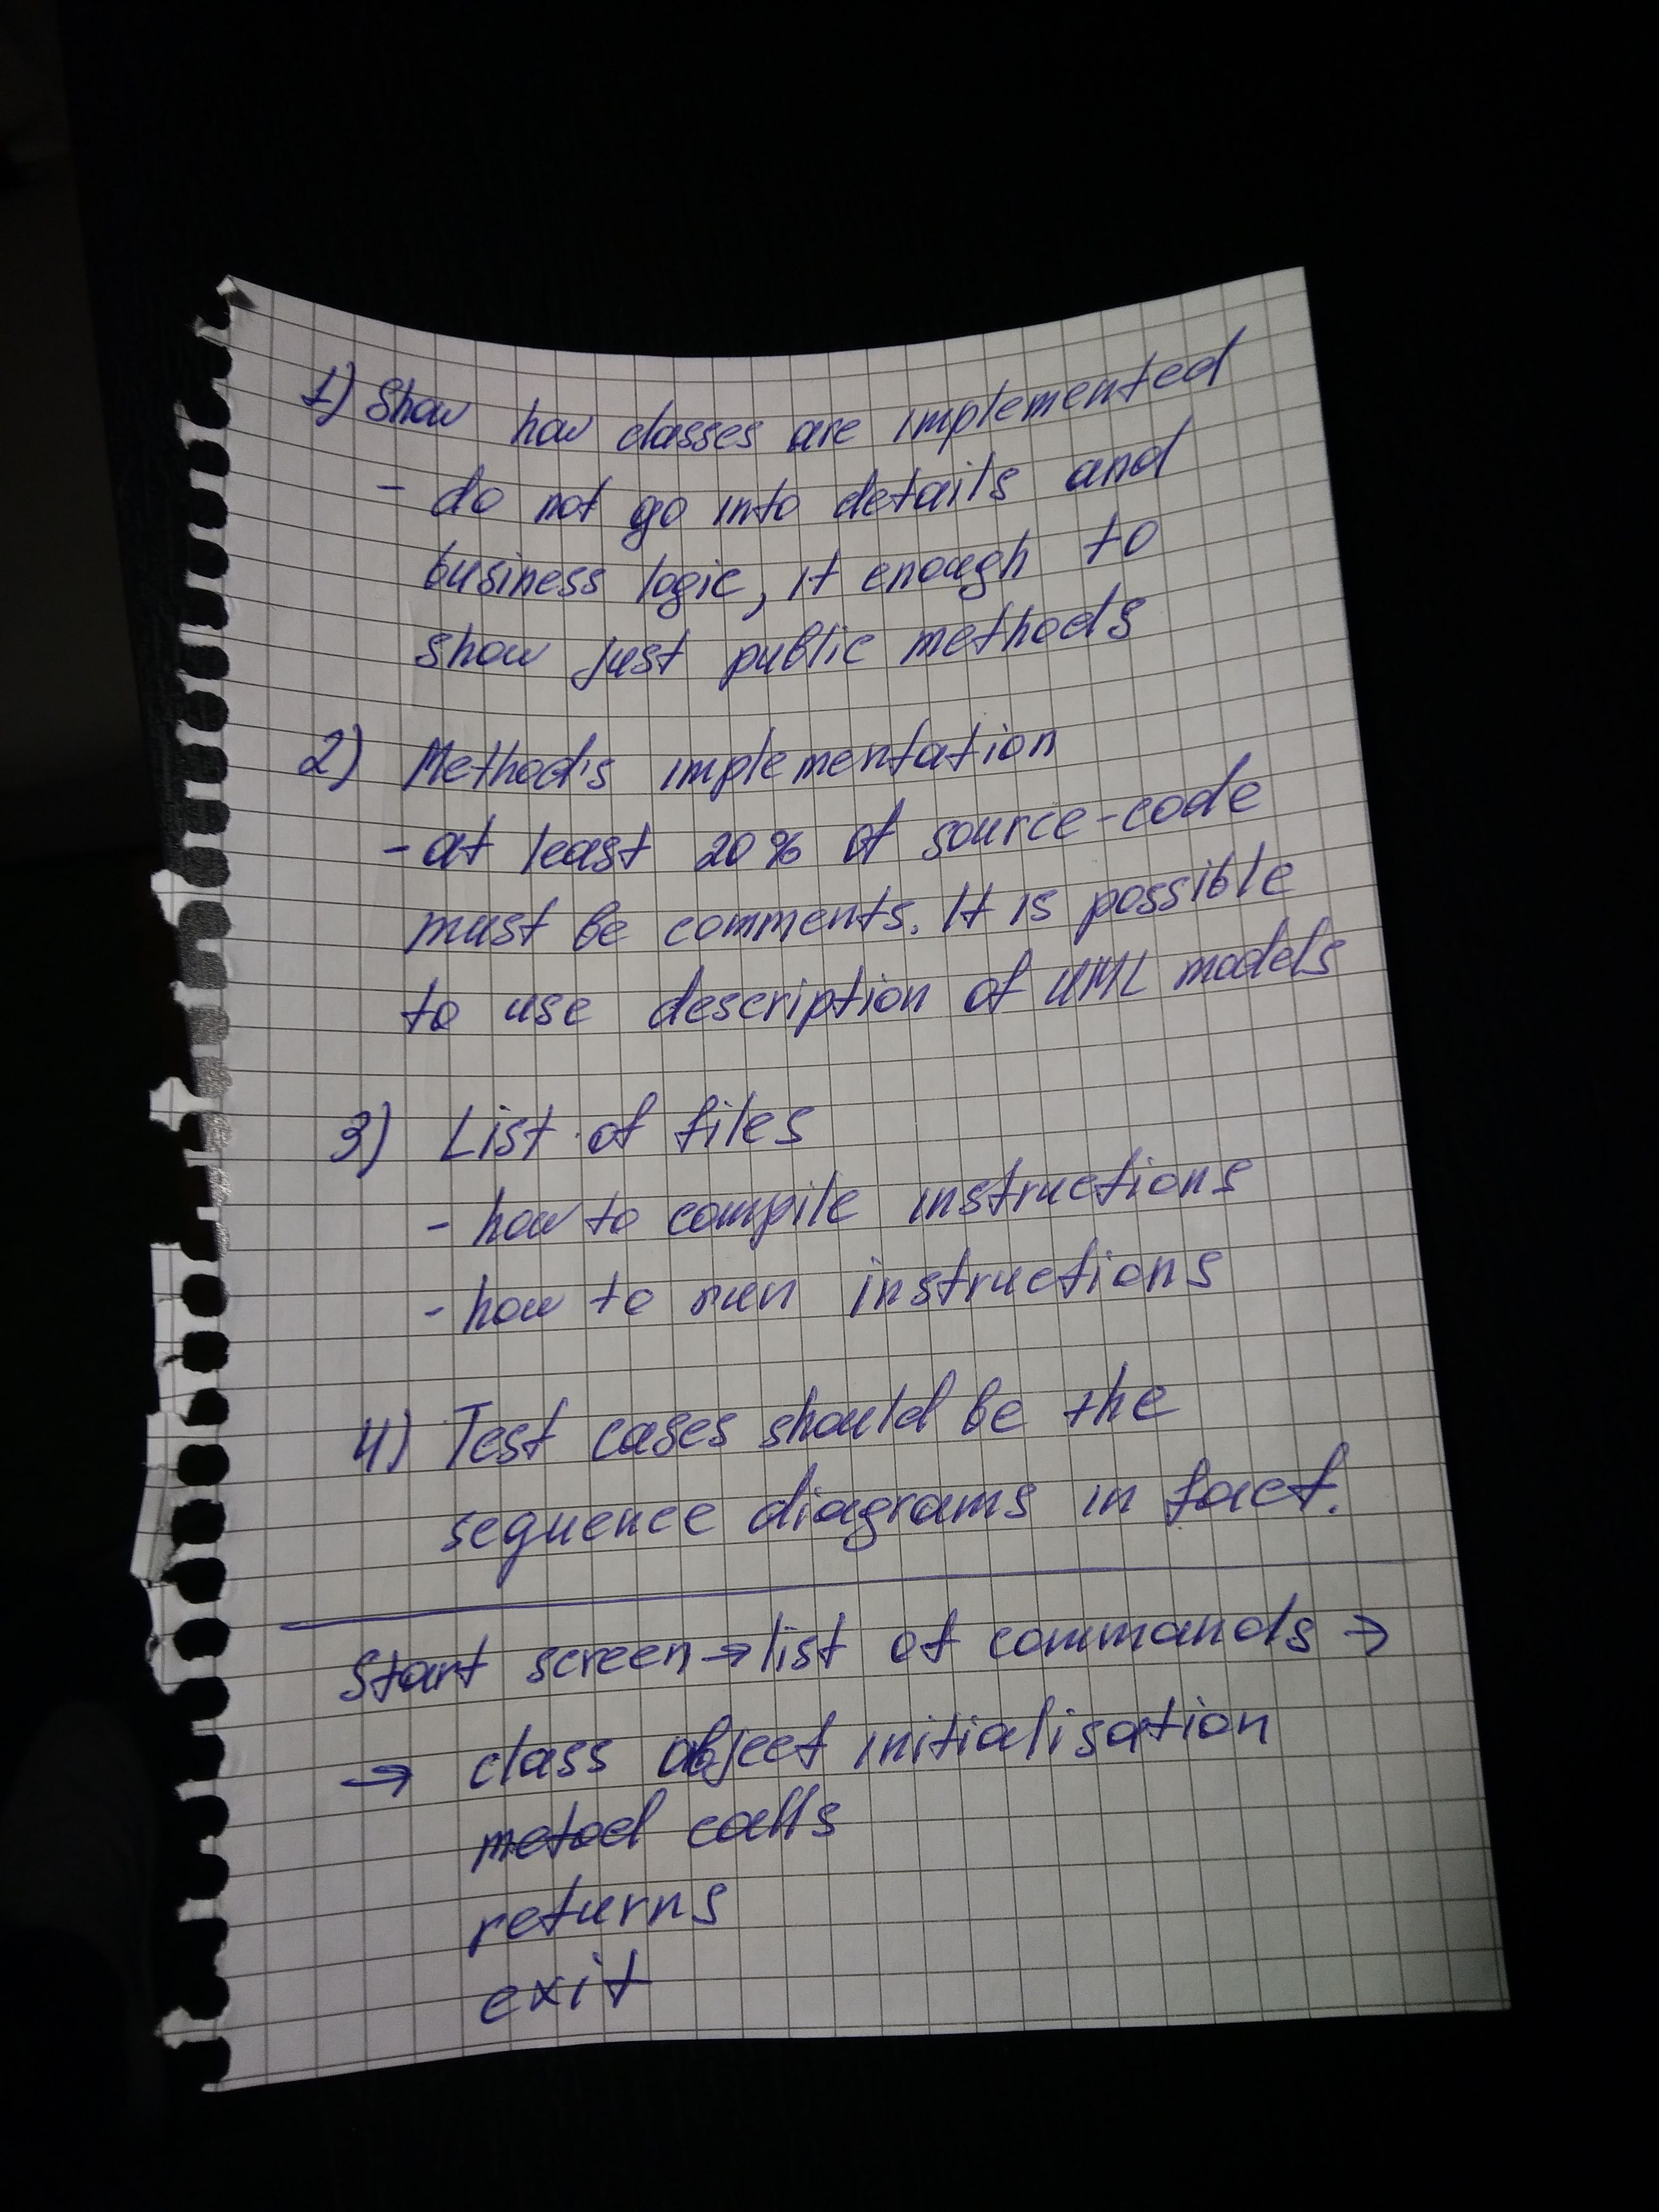 1) Show how classes are implemented
- do not go into details and
business logic, it enough to
show just public methods
2) Method's implementation
- at least 20% of source-code
must be comments. It is possible
to use description of UML models
3) List of files
- how to compile instructions
- how to run instructions
4) Test cases should be the
sequence diagrams in fact.
Start screen → list of commands →
→ class object initialisation
metod calls
returns
exit